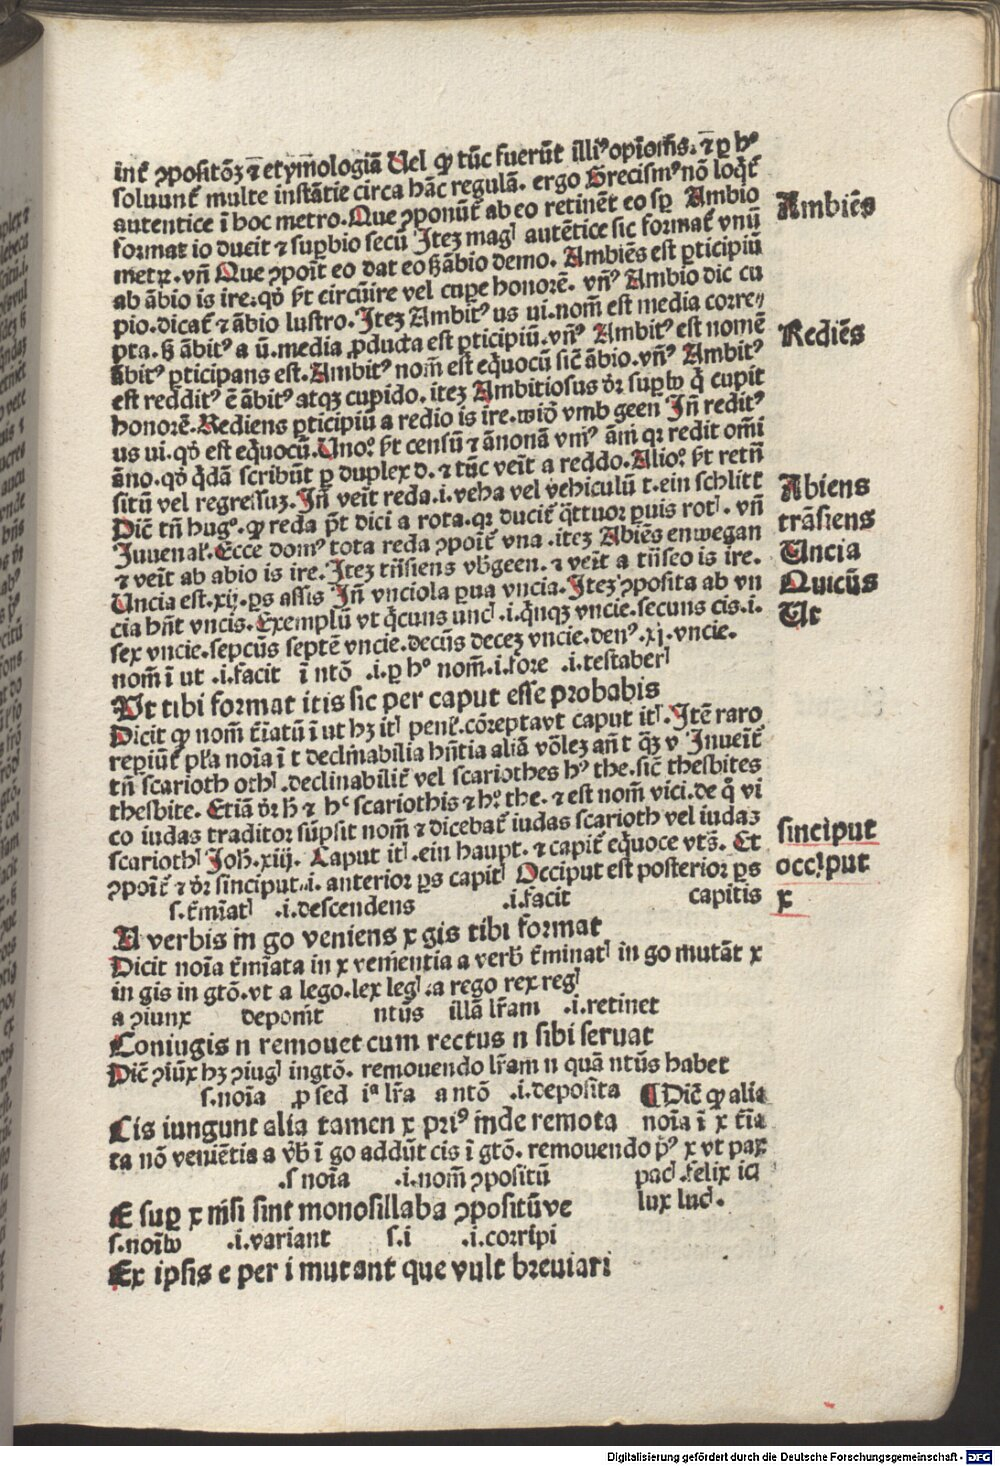 int̄ ꝯpositōꝫ ⁊ etymologiā Uel ꝙ tūc fuerūt illiꝰ opiōis. ⁊ ꝑ hꝰ
soluunt̄ multe instātie circa hāc regulā. ergo Grecismꝰ nō loqt̄
autentice ī hoc metro. Que ꝯponūt̄ ab eo retinēt eo sꝑ Ambio
format io ducit ⁊ suꝑbio secū Iteꝫ magl̄ autētice sic format̄ vnū
metꝝ. vn̄ Que ꝯpoīt eo dat eo ß ābio demo. Ambiēs est ꝑticipiū
ab ābio is ire. qd̄ ßt circūire vel cuꝑe honorē. vn̄ꝰ Ambio dic cu
pio. dicat̄ ⁊ ābio lustro. Iteꝫ Ambitꝰ us ui. nom̄ est media corre⸗
pta. ß ābitꝰ a ū. media ꝓducta est ꝑticipiū. vn̄ꝰ Ambitꝰ est nomē
ābitꝰ ꝑticipans est. Ambitꝰ nom̄ est eq̄uocū sic̄ ābio. vn̄ꝰ Ambitꝰ
est redditꝰ ē ābitꝰ atqꝫ cupido. iteꝫ Ambitiosus dr̄ suꝑbꝰ q̄ cupit
honorē. Rediens ꝑticipiū a redio is ire. widd̄ vmb geen In̄ reditꝰ
us ui. qd̄ est eq̄uocū. Unoꝰ ßt censū ⁊ ānonā vniꝰ āni qꝛ redit om̄i
āno. qd̄ q̄dā scribūt ꝑ duplex d. ⁊ tūc veīt a reddo. Alioꝰ ßt retn̄
sitū vel regressuꝫ. In̄ veīt reda .i. veha vel vehiculū t. ein schlitt
Dic̄ tn̄ hugꝰ. ꝙ reda p̄t dici a rota. qꝛ ducit̄ q̄ttuor ꝑuis rotl̄. vn̄
Iuuenal̄. Ecce domꝰ tota reda ꝯpoīt̄ vna. itez Abiēs enwegan
⁊ veīt ab abio is ire. Itez tn̄siens vb̄geen. ⁊ veīt a tn̄seo is ire.
Uncia est. xij. ꝑs assis In̄ vnciola ꝑua vncia. Iteꝫ ꝯposita ab vn
cia hn̄t vncis. Exemplū vt q̄cuns uncl̄ .i. q̄nqꝫ vncie. secuns cis .i.
sex vncie. sepcūs septē vncie. decūs deceꝫ vncie. denꝰ .xj. vncie.
nom̄ ī ut .i. facit ī ntō .i. ꝑ hꝰ nom̄ .i. fore .i. testaberl̄
Ut tibi format itis sic per caput esse probabis
Dicit ꝙ nom̄ t̄iatū ī ut hꝫ itl̄ penl̄. cōreptavt caput itl̄. Itē raro
repiūt̄ pl̄a noīa ī t declīnabilia hn̄tia aliā vōleꝫ an̄ t q̄ꝫ v Inueīt̄
tn̄ scarioth othl̄. declinabilit̄ vel scariothes hꝰ the. sic̄ thesbites
thesbite. Etiā dr̄ h̄ ⁊ hͨ scariothis ⁊ hꝰ the. ⁊ est nom̄ vici. de q̄ vi
co iudas traditor sūpsit nom̄ ⁊ dicebat̄ iudas scarioth vel iudas
scariothl̄ Joh̄. xiij. Caput itl̄. ein haupt. ⁊ capit̄ eq̄uoce vts̄. Et
ꝯpoīt̄ ⁊ dr̄ sinciput .i. anterior ꝑs capitl̄ Occiput est posterior ꝑs
s. t̄miatl̄ .i. descendens .i. facit capitis
A verbis in go veniens x gis tibi format
Dicit noīa t̄mīata in x vemētia a verb̄ t̄minatl̄ in go mutāt x
in gis in gtō. vt a lego. lex legl̄. a rego rex regl̄
a ꝯiunx deponit ntiūs illā lr̄am .i. retinet
Coniugis n remouet cum rectus n sibi seruat
Dic̄ ꝯiūx hꝫ ꝯiugl̄ ingtō. remouendo lr̄am n quā ntūs habet
s. noīa ꝓ sed iª lr̄a a ntō .i. deposita ¶ Dic̄ ꝙ alia
Cis iungunt alia tamen x priꝰ inde remota noīa ī x t̄ia
ta nō veniētia a vb̄ ī go addūt cis ī gtō. remouendo pꝰ x vt pax
.s noīa .i. nom̄ ꝯpositū pacl̄. felix icl̄
E suꝑ x nisi sint monosillaba ꝯpositūve lux lucl̄.
s. noībꝰ .i. variant s. i .i. corripi
Ex ipsis e per i mutant que vult breuiari
Ambiēs
Rediēs
Abiens
trāsiens
Uncia
Quicūs
Ut
sinciput
occiput
x
Digitalisierung gefördert durch die Deutsche Forschungsgemeinschaft - DFG